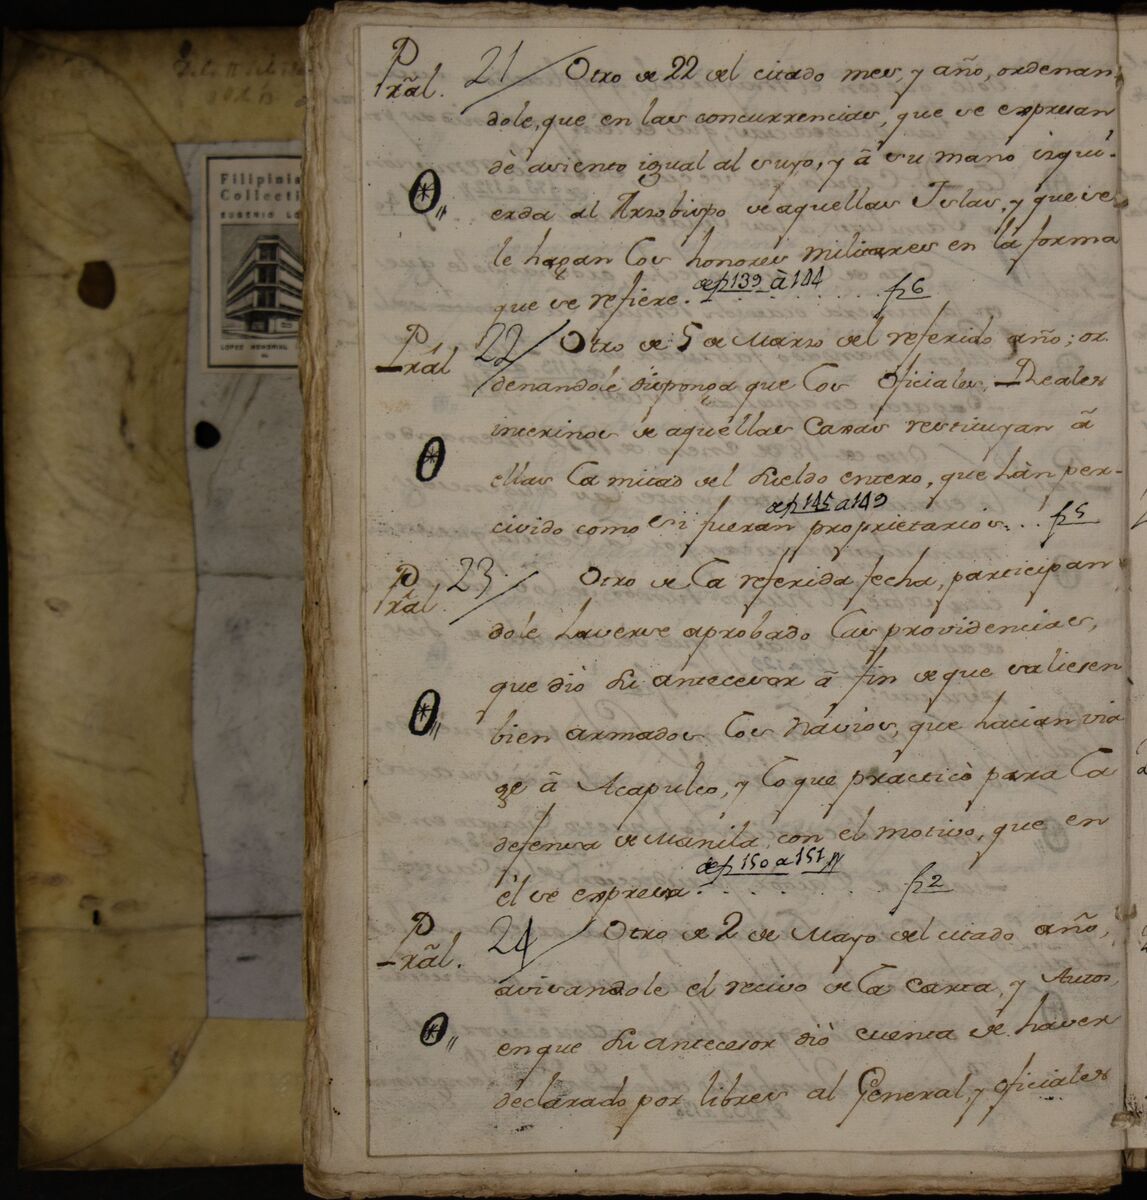 Filipinia
Collecti
EUGENIO LO
LOPEZ MEMORIAL
P
rãl.
21/ Otro de 22 del citado mes, y año, ordenan
dole, que en las concurrencias, que se expresan
dè asiento igual al suyo, y â su mano izqui-
erda al Arzobispo de aquellas Islas, y que se
le hagan los honores militares en la forma
que se refiere. dep 139 à 144 f 6
P
rãl
22/ Otro de 5 de Marzo del referido año; or
denandole disponga que los Oficiales Reales
interinos de aquellas Caxas restituyan â
ellas la mitad del sueldo entero, que hàn per-
civido como si fueran proprietarios. dep 145 a 149 f 5
P
rãl.
23/ Otro de la referida fecha, participan
dole haverse aprobado las providencias,
que diò su antecesor â fin de que saliesen
bien armados los Navios, que hacian via
ge â Acapulco, y lo que practicò para la
defensa de Manila, con el motivo, que en
èl se expresa. dep 150 a 151 f 2
P
rãl.
24/ Otro de 2 de Mayo del citado año,
avisandole el recivo de la carta, y Autos
enque su antecesor diò cuenta de haver
declarado por libres al General, y oficiales